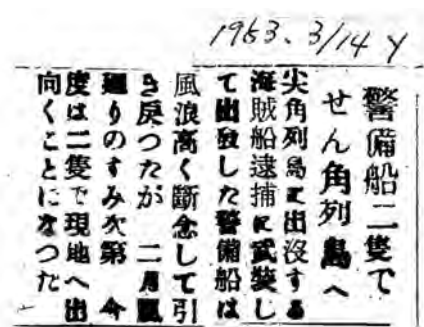 1953、3/14 Y
警備船二隻で
せん角列島へ
尖角列島に出沒する
海賊船逮捕に武裝し
て出發した警備船は
風浪高く斷念して引
き戻つたが　二月風
廻りのすみ次第　今
度は二隻で現地へ出
向くことになつた